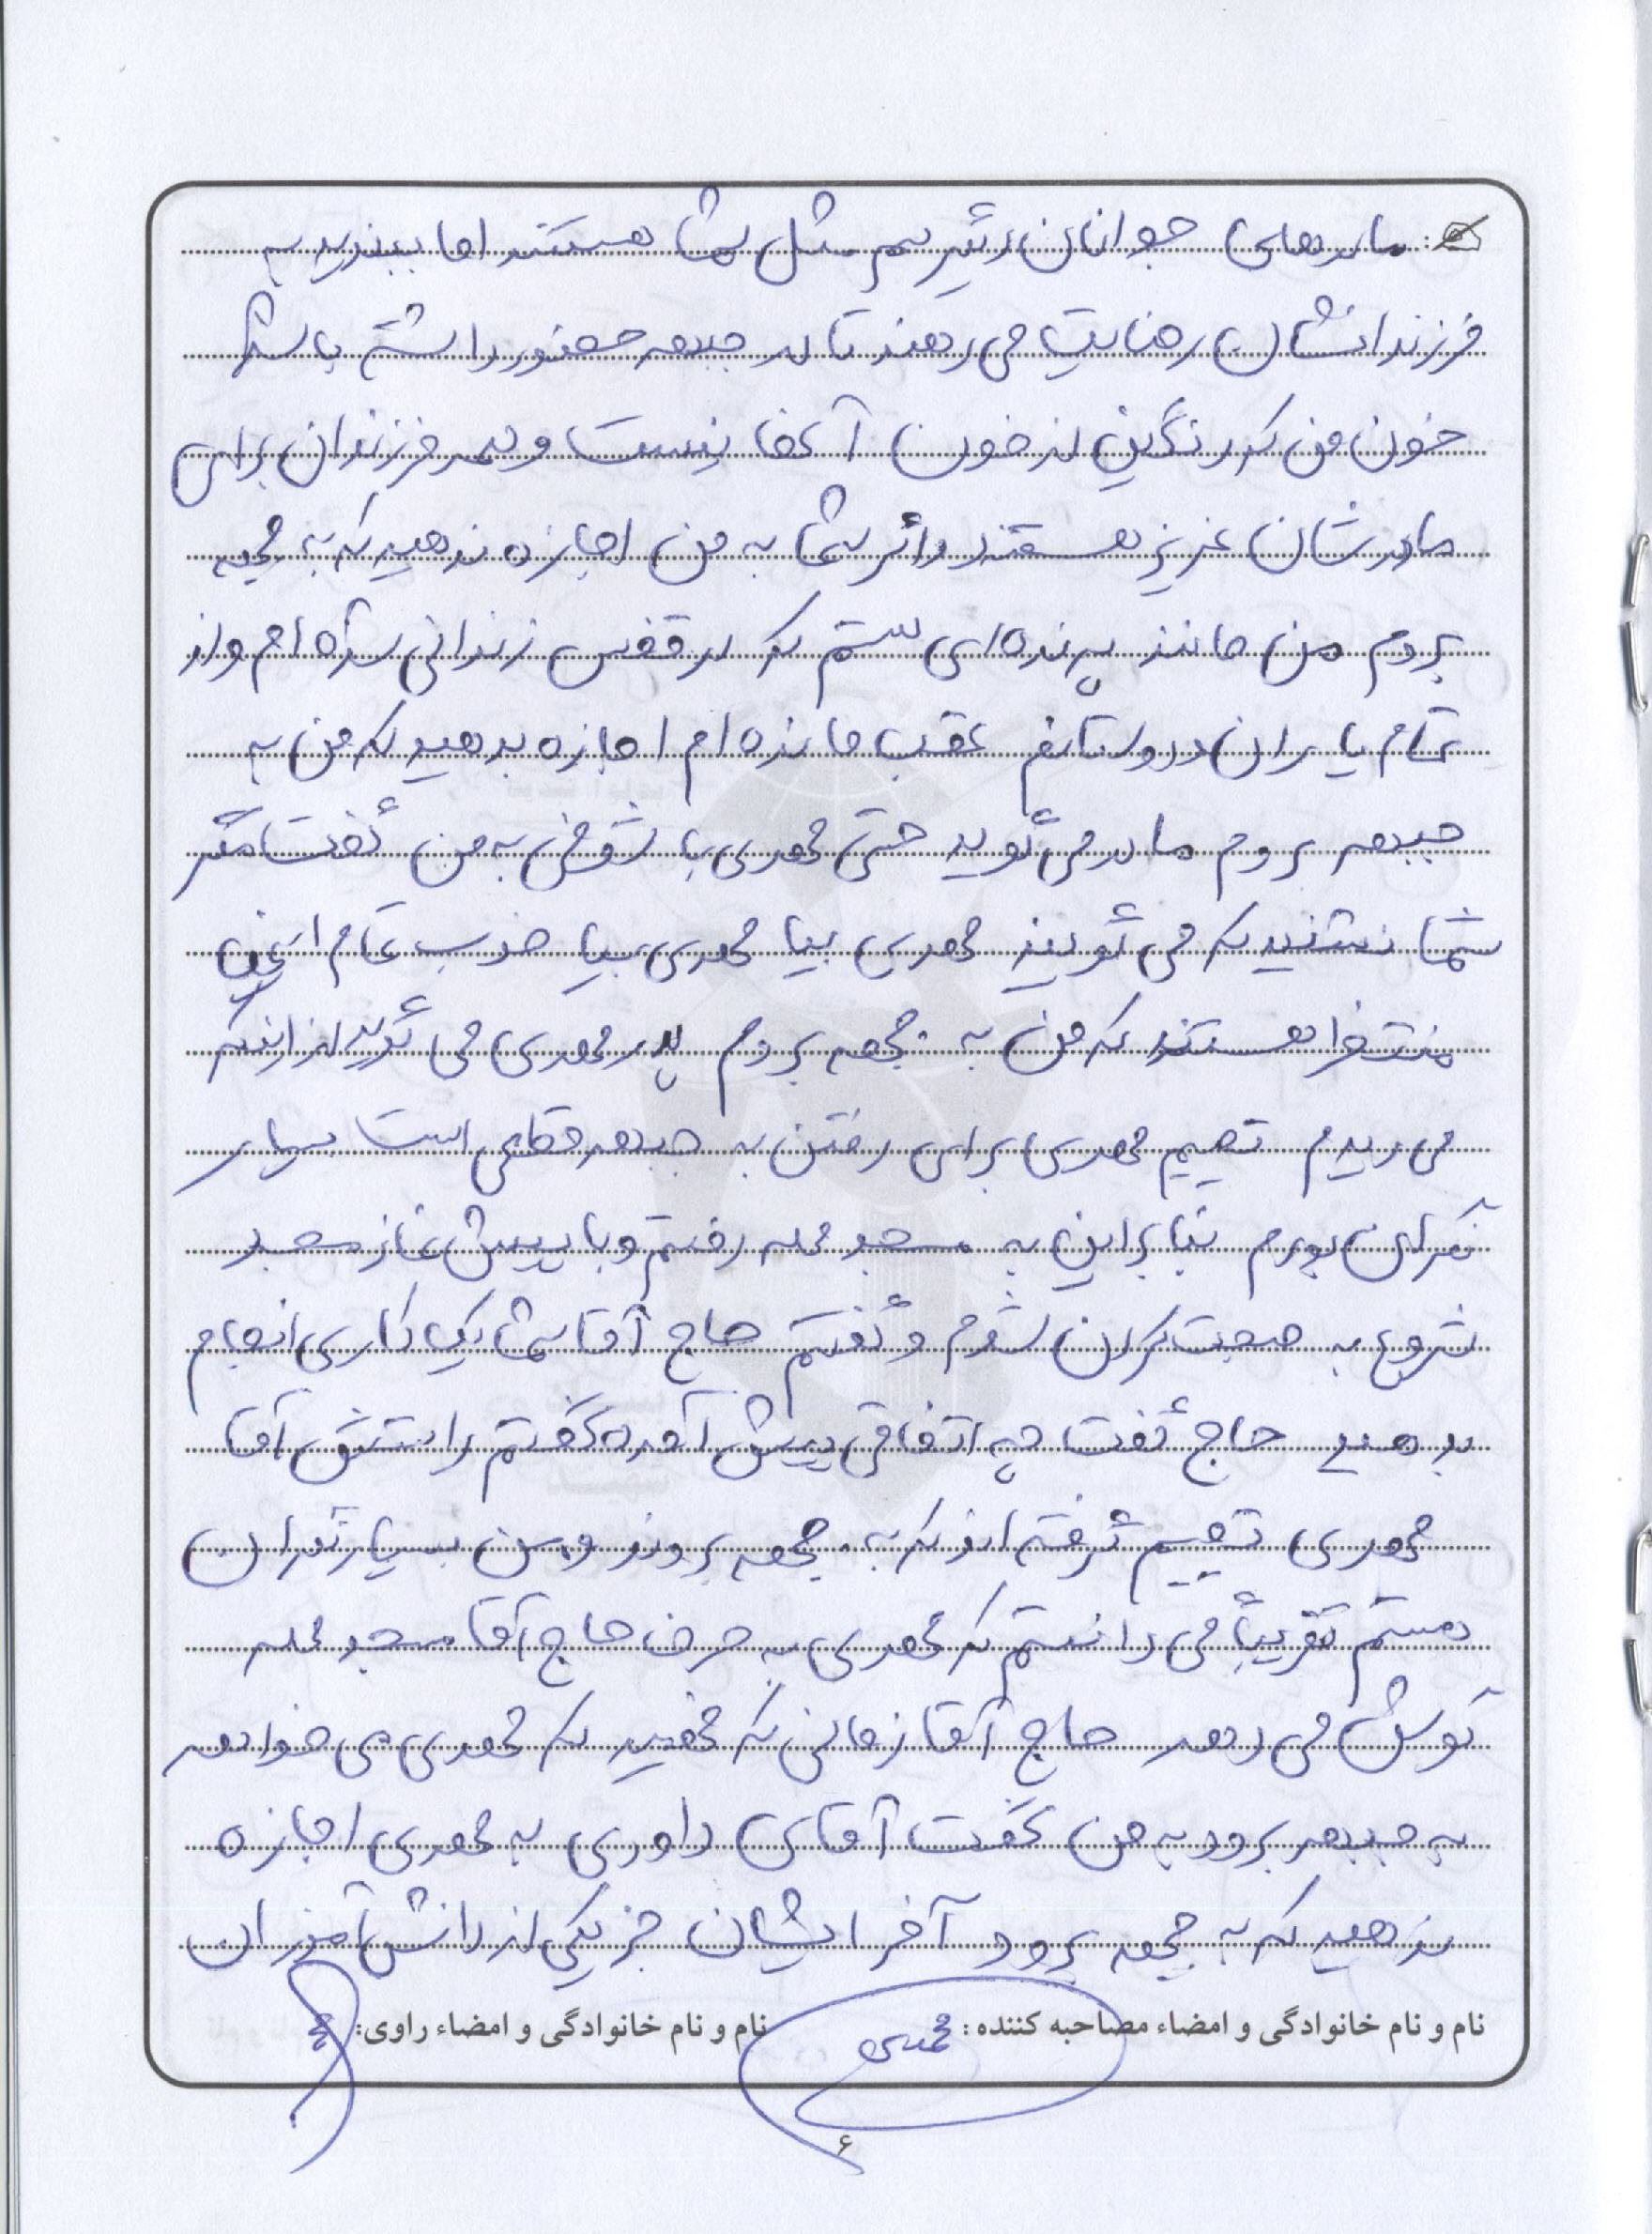 مادرهای جوانان دیگر هم مثل شما هستند اما ببینید به
فرزندانشان رضایت می دهند تا در جبهه حضور داشته باشند
خون من که رنگین از خون آنها نیست و همه فرزندان برای
مادرشان عزیز هستند و اگر شما به من اجازه ندهید که به جبهه
بروم من مانند پرنده ای هستم که در قفس زندانی شده ام و از
تمام یاران و دوستانم عقب مانده ام اجازه بدهید که من به
جبهه بروم مادر می گوید حتی مهدی با شوخی به من گفت مگر
شما نشنیدید که می گویند مهدی بیا مهدی بیا خوب تمام این
منتظر هستند که من به جبهه بروم پدر مهدی می گوید از اینکه
می دیدم تصمیم مهدی برای رفتن به جبهه قطعی است بسیار
نگران بودم بنابراین به مسجد محله رفتم و با پیش نماز مسجد
شروع به صحبت کردن شدم و گفتم حاج آقا شما یک کاری انجام
بدهید حاج گفت چه اتفاقی پیش آمده گفتم راستش آقا
مهدی تصمیم گرفته اند که به جبهه بروند و من بسیار نگران
هستم تقریباً می دانستم که مهدی به حرف حاج آقا مسجد محله
گوش می دهد حاج آقا زمانی که فهمید که مهدی می خواهد
به جبهه برود به من گفت آقای داوری به مهدی اجازه
ندهید که به جبهه برود آخر ایشان جز یکی از دانش آموزان
نام و نام خانوادگی و امضاء مصاحبه کننده: محمدی نام و نام خانوادگی و امضاء راوی:
۶